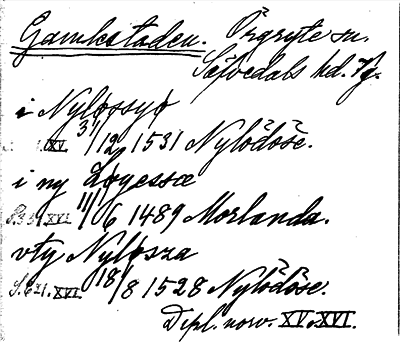 Gamlestaden. Örgryte sn.
Sävedals hd. Vg.
i Nyløssyø
XV. 31/12 1531 Nylödöse.
i ny Løyessæ
S. 33 XVI. 11/06 1489 Morlanda.
vty Nyløsza
S. 621. XVI. 18/8 1528 Nylödöse.
Dipl. norv. XV. XVI.